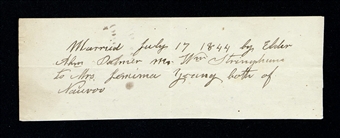 Married July 17 1844 by Elder
Abm Palmer Mr. Wm Stringham
to Mrs. Jemima Young both of
Nauvoo